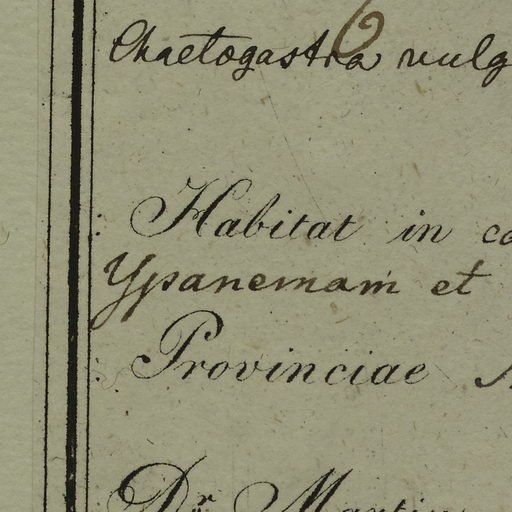 Chaetogastra vulg
Habitat in ca
Ypanemam et
Provinciae
Dr. Martius